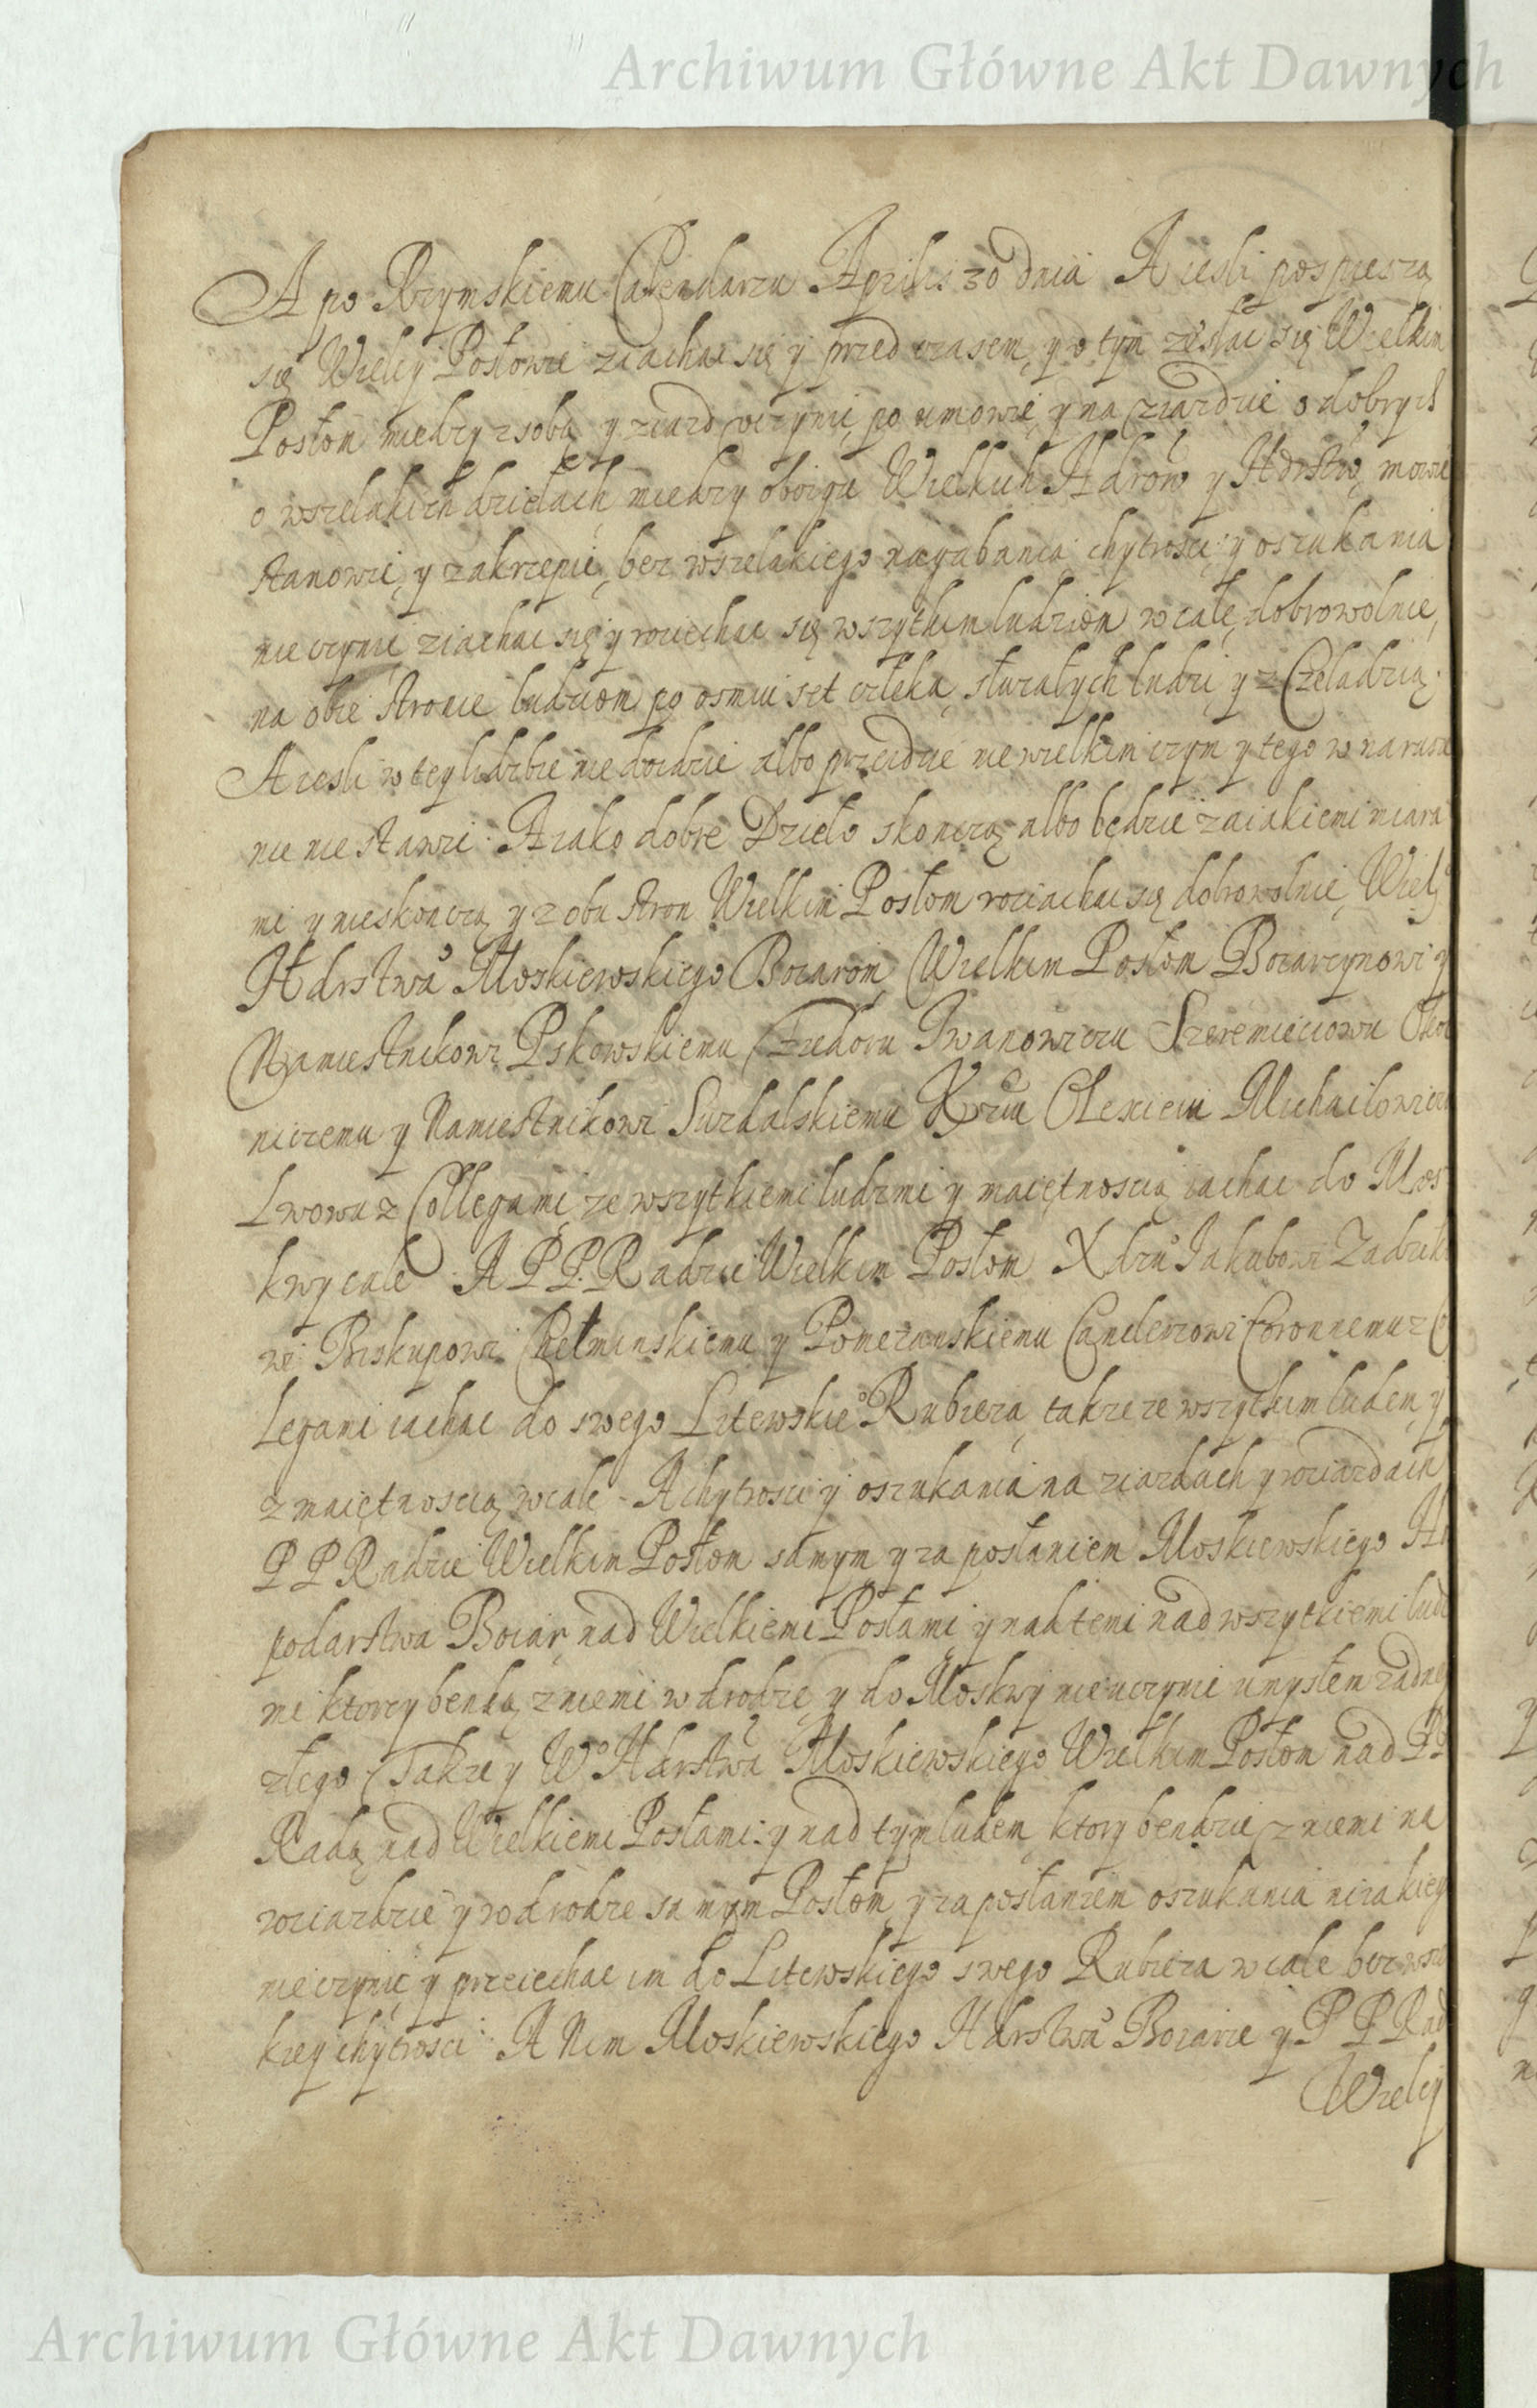 Archiwum Główne Akt Dawnych
A po Rzymskiemu Calendarzu Aprilis 30 dnia A iesli pospieszą
się Wielcy Posłowie ziachac się y przed czasem, y o tym zesłac się Wielkim
Posłom miedzy sobą y ziazd uczynic, po umowie, y na ziazdzie o dobrych
o wszelakich dzielach miedzy oboigu Wielkich Hdarow y Hdrstw, mowic
stanowic, y zakrzepic, bez wszelakiego nagabania chytrosci y oszukania
nie czynic ziachac się y roziechac się wszytkim ludziom w cale, dobrowolnie,
na obie stronie ludziom po osmui set człeka, służałych ludzi y z Czeladzią.
A iesli w tey liczbie nie doidzie albo przeidzie nie wielkim czym y tego w narusze
nie nie stawic. A iako dobre Dzieło skonczą, albo będzie za iakiemi miara
mi y nieskonczą y z obu stron Wielkim Posłom roziachac się dobrowolnie, Wielo
Hdrstwa Moskiewskiego Boiarom Wielkim Posłom Boiarzynowi y
Namiestnikowi Pskowskiemu Fiedoru Iwanowiczu Szeremieciowu Okol
niczemu y Namiestnikowi Suzdalskiemu Xżciu Olexieiu Michailowiczu
Lwowu z Collegami, ze wszytkiemi ludzmi y maiętnoscią iachac do Mos
kwy cale A P P. Radzie Wielkim Posłom Xdzu Iakubowi Zadzik
wi Biskupowi Chełminskiemu y Pomezanskiemu Canclerzowi Coronnemu z Co
legami iachac do swego Litewskieo Rubieża, takze ze wszytkim ludem, y
z maiętnoscią w cale. A chytrosci y oszukania na ziazdach y roziazdach
P P Radzie Wielkim Posłom samym y za posłaniem Moskiewskiego Ho
podarstwa Boiar, nad Wielkiemi Posłami y nad temi nad wszytkiemi ludz
mi ktorzy bendą z niemi w drodze, y do Moskwy nie uczynic umysłem zadneg
złego Takze y Wo Hdrstwa Moskiewskiego Wielkim Posłom nad P P
Radą nad Wielkiemi Posłami: y nad tym ludem, ktory bendzie z niemi na
roziazdzie y w drodze samym Posłom, y za posłaniem oszukania niiakieg
nie czynic y przeiechac im do Litewskiego swego Rubieza w cale bez wszela
kiey chytrosci: A Nim Moskiewskiego Hdrstwa Boiarie y P P Rad
Wielcy
Archiwum Główne Akt Dawnych